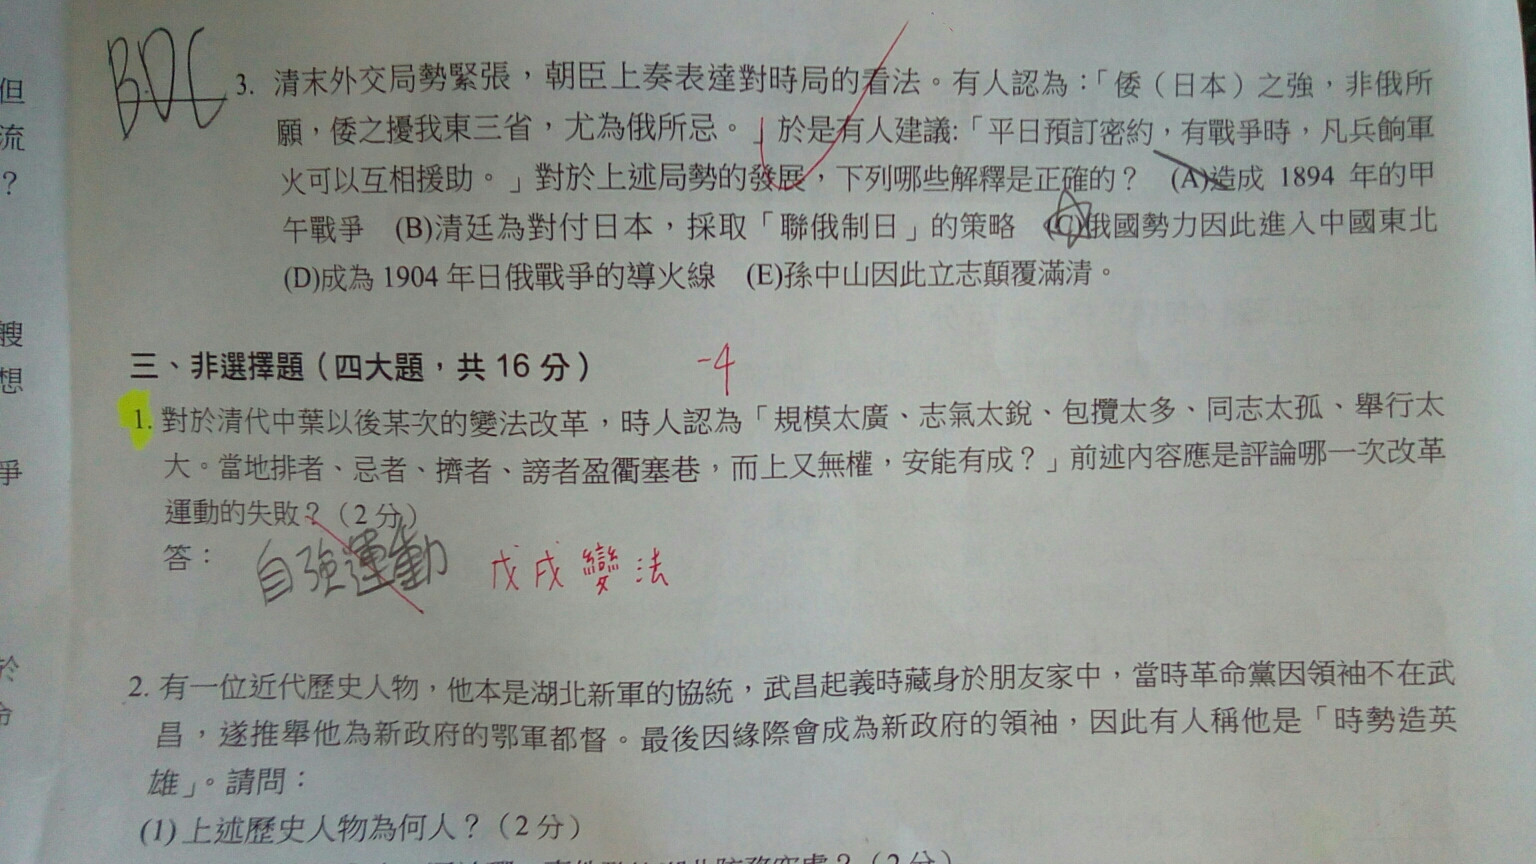 BDC
3. 清末外交局勢緊張，朝臣上奏表達對時局的看法。有人認為：「倭（日本）之強，非俄所
願，倭之擾我東三省，尤為俄所忌。」於是有人建議:「平日預訂密約，有戰爭時，凡兵餉軍
火可以互相援助。」對於上述局勢的發展，下列哪些解釋是正確的？ (A)造成 1894 年的甲
午戰爭 (B)清廷為對付日本，採取「聯俄制日」的策略 (C)俄國勢力因此進入中國東北
(D)成為 1904 年日俄戰爭的導火線 (E)孫中山因此立志顛覆滿清。
三、非選擇題（四大題，共 16 分） -4
1. 對於清代中葉以後某次的變法改革，時人認為「規模太廣、志氣太銳、包攬太多、同志太孤、舉行太
大。當地排者、忌者、擠者、謗者盈衢塞巷，而上又無權，安能有成？」前述內容應是評論哪一次改革
運動的失敗？（2 分）
答： 自強運動 戊戌變法
2. 有一位近代歷史人物，他本是湖北新軍的協統，武昌起義時藏身於朋友家中，當時革命黨因領袖不在武
昌，遂推舉他為新政府的鄂軍都督。最後因緣際會成為新政府的領袖，因此有人稱他是「時勢造英
雄」。請問：
(1) 上述歷史人物為何人？（2 分）
但
流
？
艘
想
爭
於